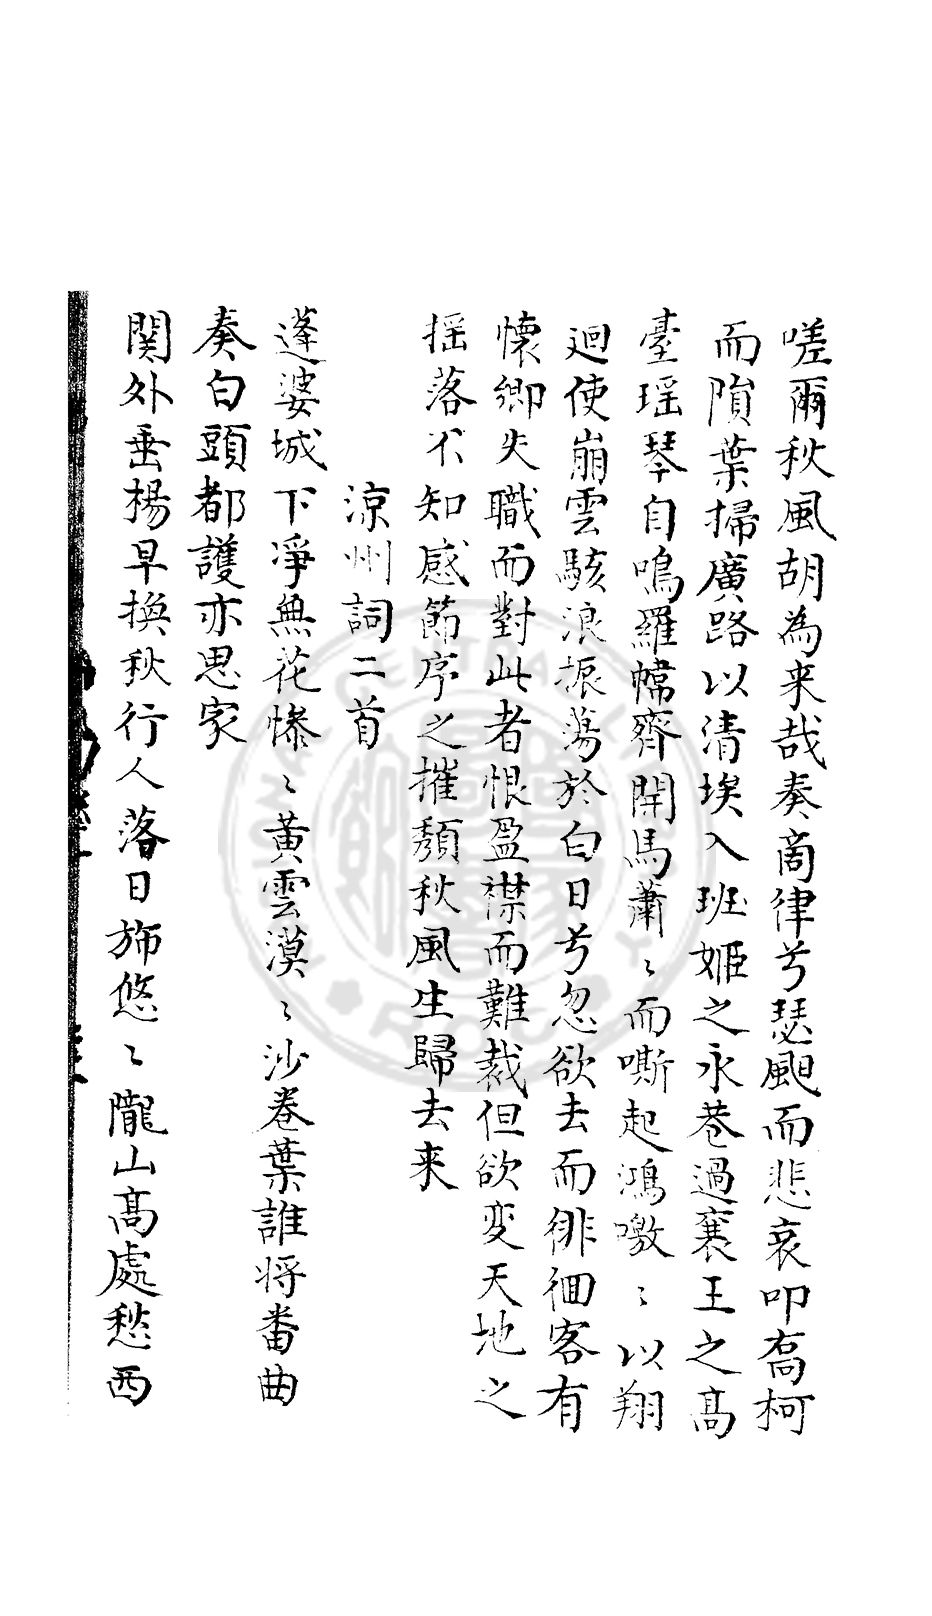 嗟爾秋風胡為来哉奏商律兮瑟颸而悲哀叩喬柯
而隕葉掃廣路以清埃入班姬之永巷過襄王之髙
臺瑶琴自鳴羅幬齊開馬蕭〻而嘶起鴻嗷〻以翔
迴使崩雲駭浪振蕩於白日兮忽欲去而徘徊客有
懷鄉失職而對此者恨盈襟而難裁但欲変天地之
揺落不知感節序之摧頽秋風生歸去来
涼州詞二首
蓬婆城下凈無花惨〻黄雲漠〻沙卷葉誰将番曲
奏白頭都護亦思家
関外垂楊早換秋行人落日斾悠〻隴山髙處愁西